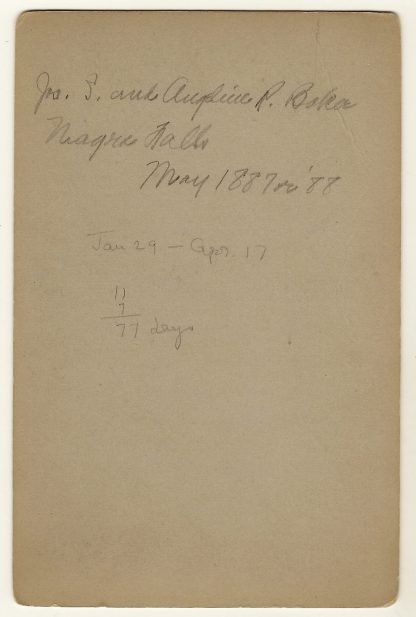 Jos. S. and Angeline R. Baka
Niagra Falls
May 1887 or '88
Jan 29 — Apr. 17
11
7
77 days